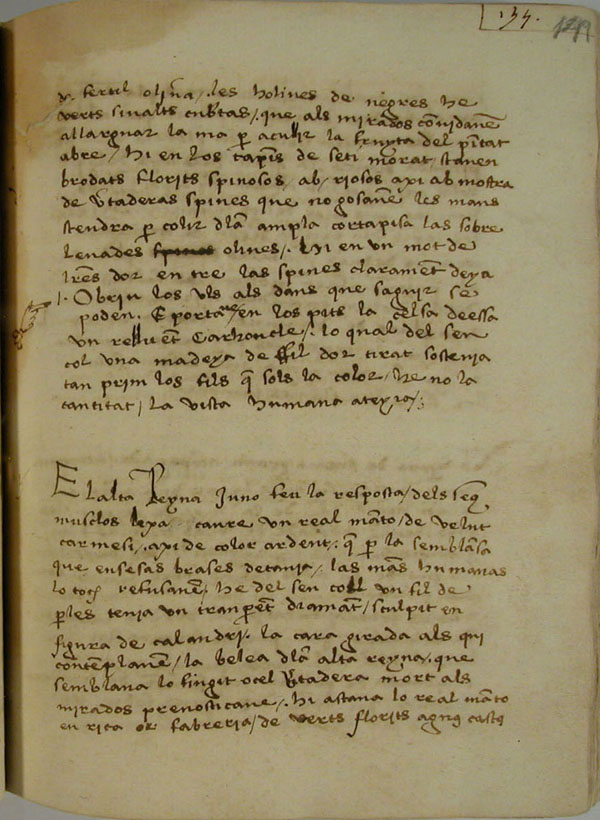 .135.
de fertil oliva /. les holives de negres he
verts sivalts cubertas /. que als mirados convidaven
allarguar la ma per acullir la fruyta del pintat
abre / hi en los tapins de seti morat / staven
brodats florits spinosos / abriosos axi ab mostra
de vertaderas spines que no gosaven les mans
stendra per colir dla ampla cortapisa las sobre
levades olives /. hi en un mot de
letres dor en tre las spines clarament deya
/. Obriu los uls als dans que saguir se
poden. E portaven en los pits la excelsa deessa
un relluent Carboncle /. lo qual del seu
col una madexa de fil dor tirat sostenia
tan prim los fils que sols la color / he no la
cantitat / la vista humana atexia /.
E lalta Reyna Juno feu la resposta / dels seus
musclos lexa caure un real manto / de velut
carmesi /. axi de color ardent /. que per la semblansa
que ensesas brases detania / las mans humanas
lo toch refusaven /. he del seu coll un fil de
perles tenia un tranparent diamant / sculpit en
figura de calandri /. la cara girada als qui
contemplaven / la belea dla alta reyna /. que
semblava lo fingit ocel vertadera mort als
mirados prenosticave /. hi astava lo real manto
en rica or fabreria / de verts florits agnus castus